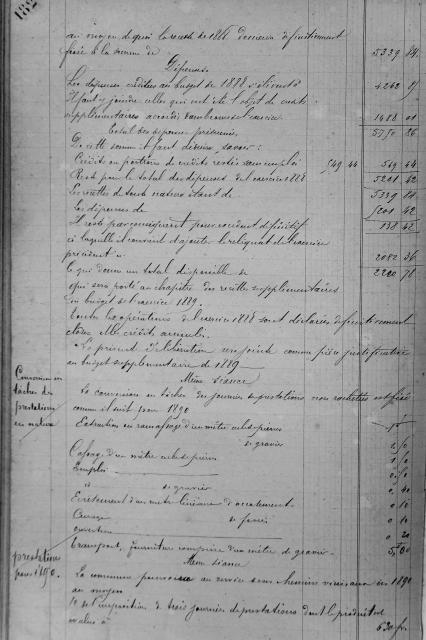 182
au moyen de quoi la recette de 1888 demeure définitivement
fixée à la somme de 5339 84
Dépenses
Les dépenses créditées au budget de 1888 s'élèvent à 4262
Il faut y joindre celles qui ont été l'objet de crédits
supplémentaires accordés dans le cours de l'exercice 1488 01
Total des dépenses présumées 5750 26
De cette somme il faut déduire savoir :
Crédits ou portions de crédits restés sans emploi 549 44 549 44
Reste pour le total des dépenses de l'exercice 1888 5201 42
Les recettes de toute nature étant de 5339 84
Les dépenses de 5201 42
Il reste par conséquent pour excédent définitif 138 42
à laquelle il convient d'ajouter le reliquat de l'exercice
précédent 2082 36
Ce qui donne un total disponible de 2220 78
qui sera porté au chapitre des recettes supplémentaires
du budget de l'exercice 1889.
Toutes les opérations de l'exercice 1888 sont déclarées définitivement
closes et les crédits annulés.
La présente délibération sera jointe comme pièce justificative
au budget supplémentaire de 1889
Même séance
Conversion en
tâches des
prestations
en nature
La conversion en tâches des journées de prestations non rachetées est fixée
comme il suit pour 1890
Extraction ou ramassage d'un mètre cube de pierres
de gravier
Cassage d'un mètre cube de pierres
Emploi
de gravier
d'un mètre linéaire d'accotement 0 10
Curage de fossés 0 10
ouverture 0 20
Transport, fourniture comprise d'un mètre de gravier 5,00
prestations
pour 1890.
Même séance
La commune pourvoira au service des chemins vicinaux en 1890
au moyen
1° de l'imposition de trois journées de prestations dont le produit est
évalué à 630 fr.